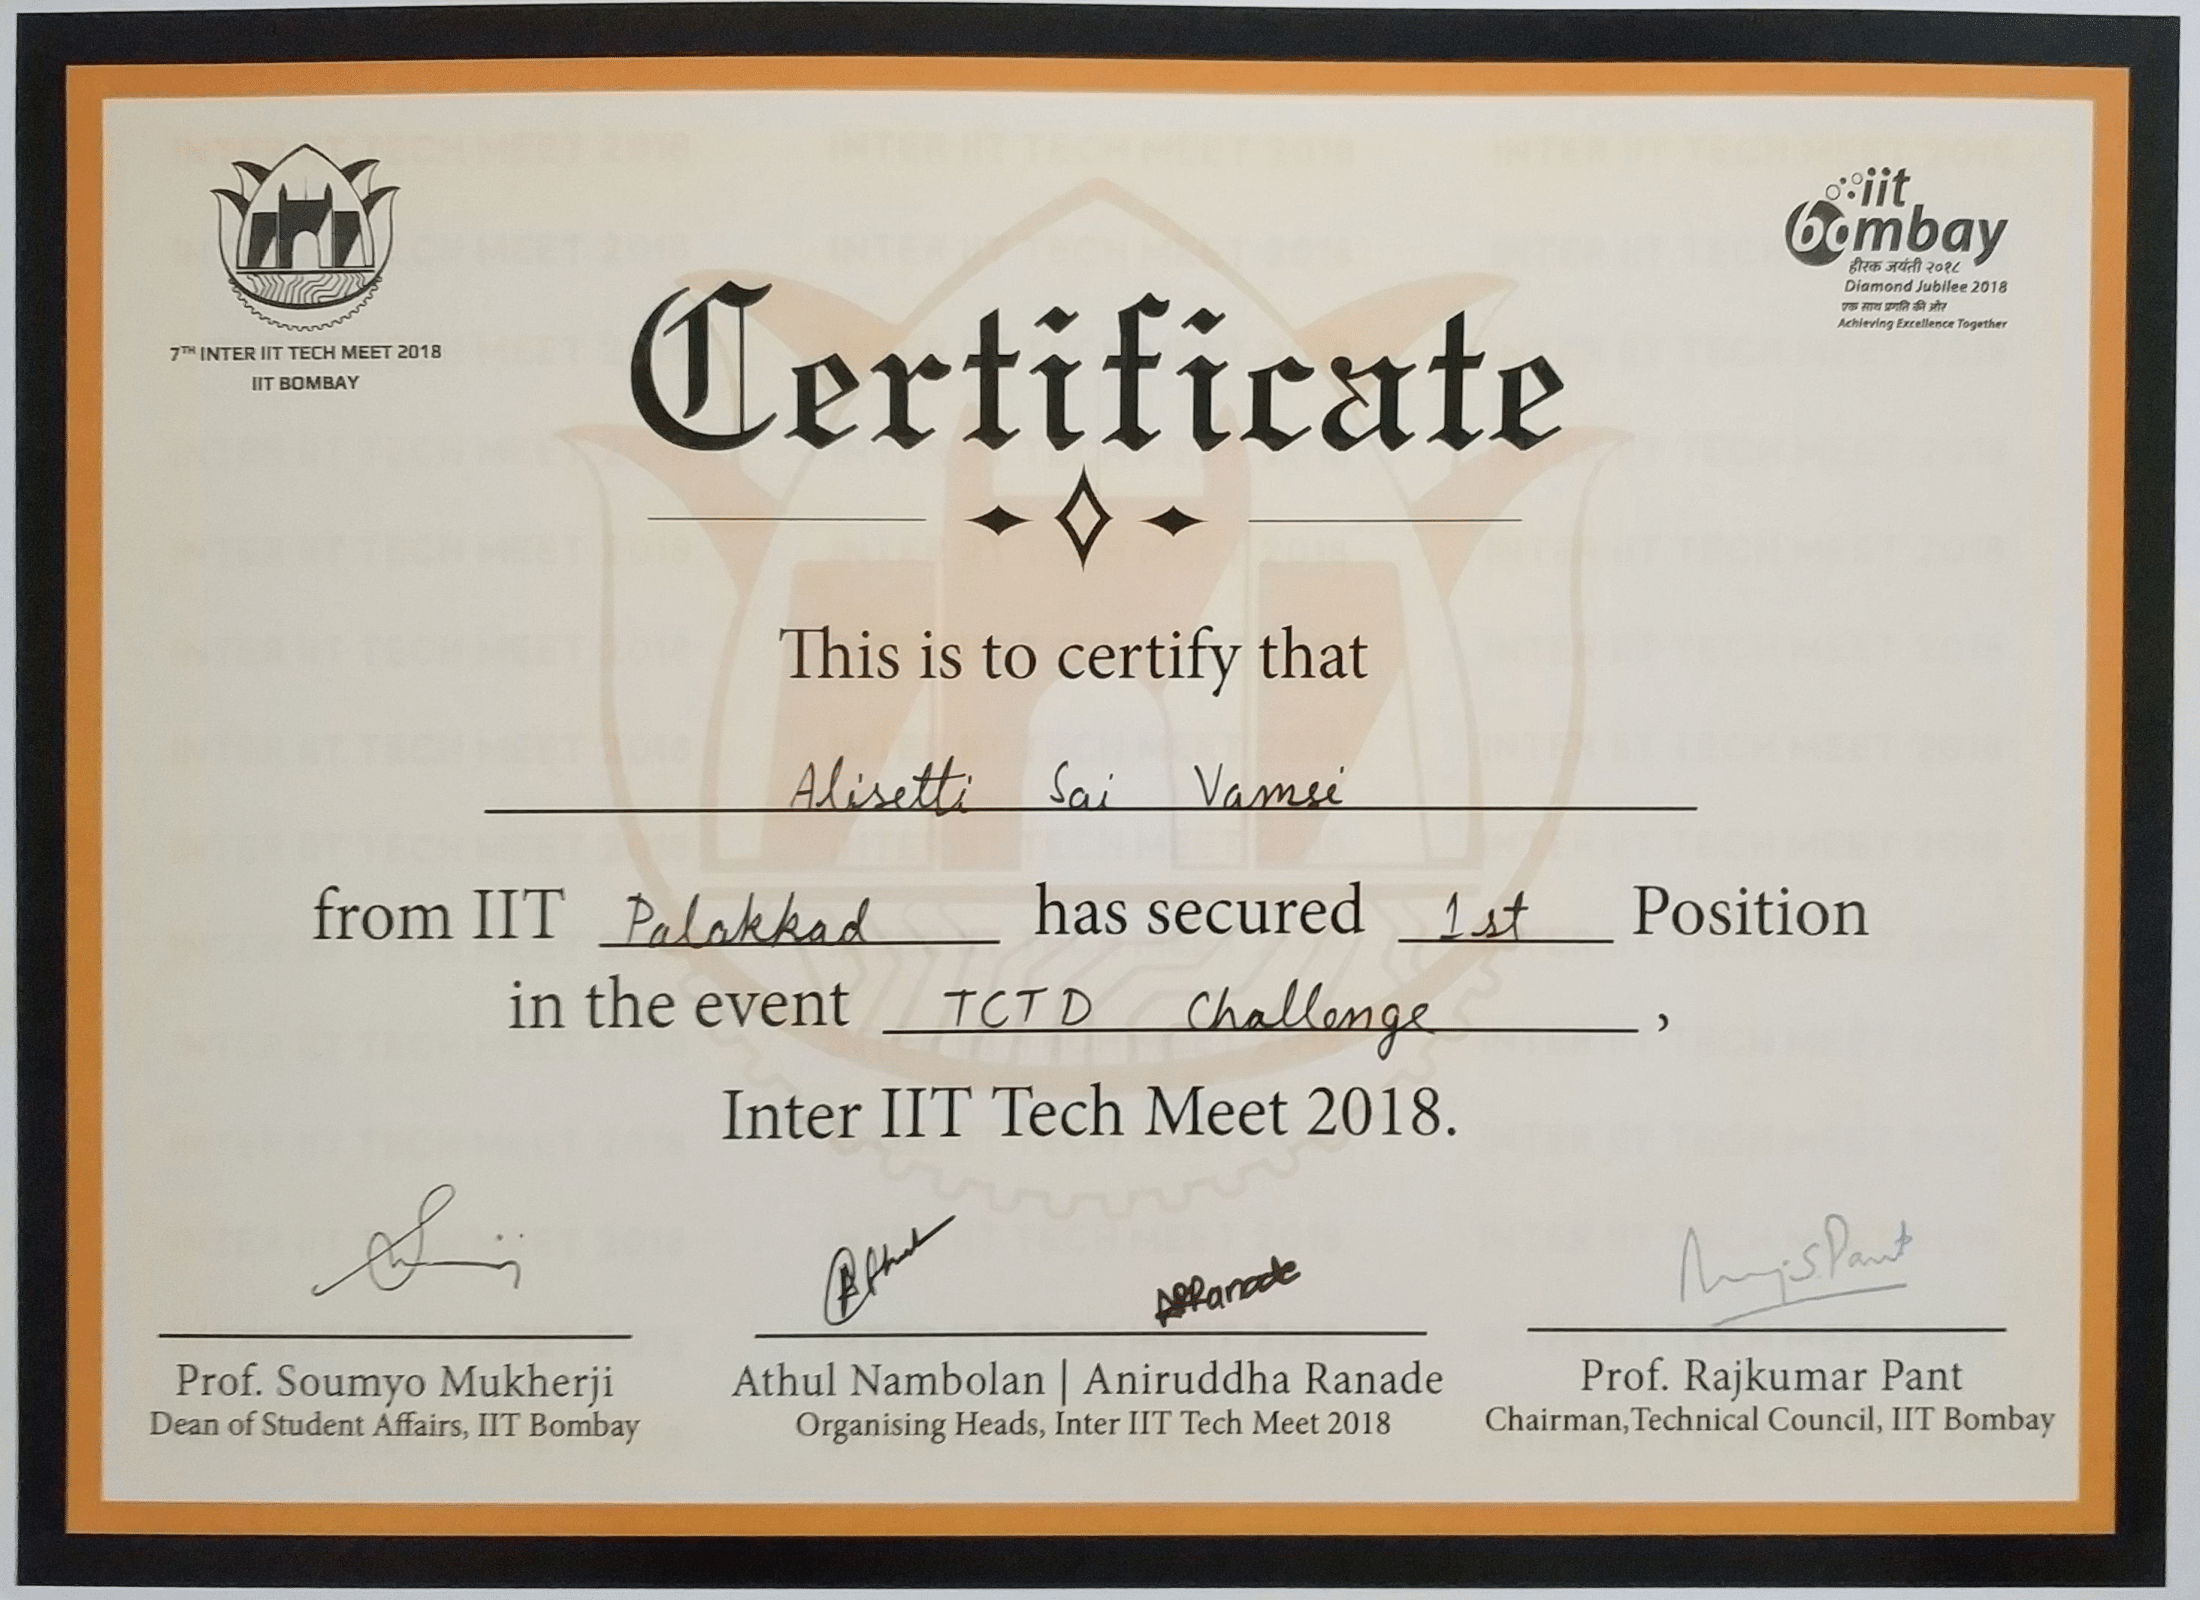 7TH INTER IIT TECH MEET 2018
IIT BOMBAY
iit
bombay
हीरक जयंती २०१८
Diamond Jubilee 2018
एक साथ प्रगति की ओर
Achieving Excellence Together
Certificate
This is to certify that
Alisetti Sai Vamsi
from IIT Palakkad has secured 1st Position
in the event TCTD Challenge ,
Inter IIT Tech Meet 2018.
Prof. Soumyo Mukherji
Dean of Student Affairs, IIT Bombay
Athul Nambolan | Aniruddha Ranade
Organising Heads, Inter IIT Tech Meet 2018
Prof. Rajkumar Pant
Chairman, Technical Council, IIT Bombay